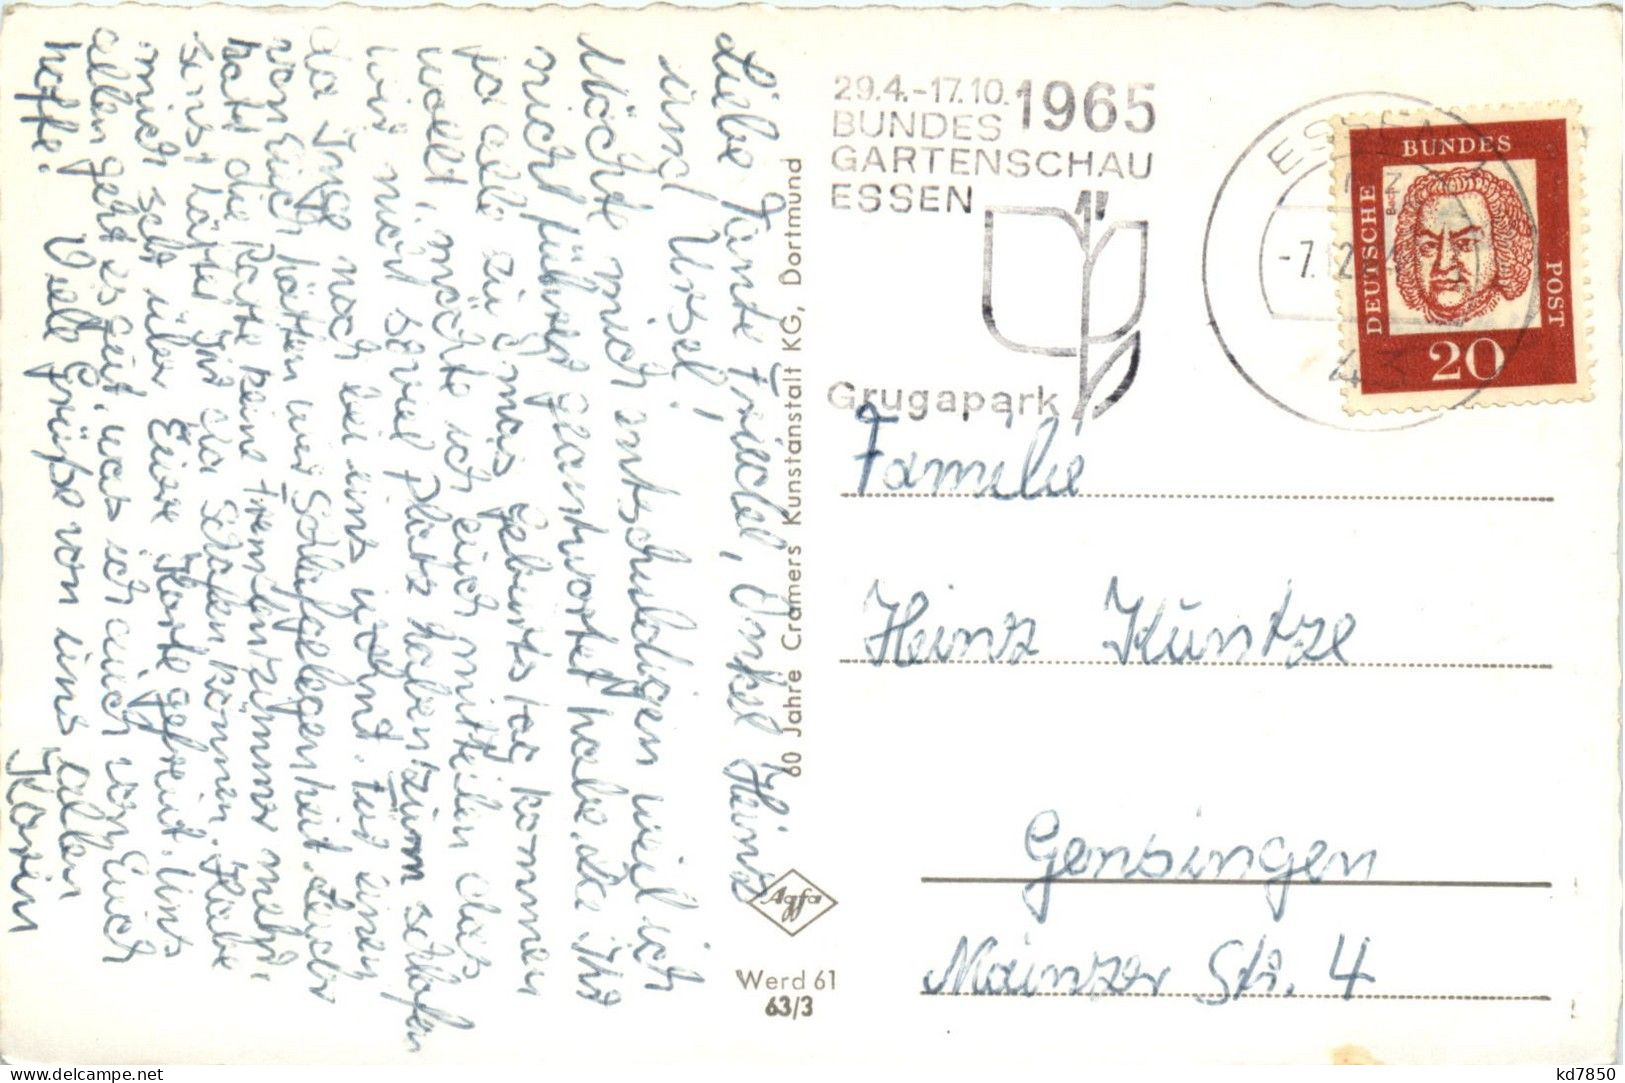 Liebe Tante Friedel, Onkel Heinz
und Ursel!
Möchte mich entschuldigen weil ich
nicht früher geantwortet habe. Da Ihr
ja alle zu Omas Geburtstag kommen
wollt, möchte ich euch mitteilen das
wir nicht soviel Platz haben zum schlafen
da Inge noch bei uns wohnt. Für einen
von Euch hätten wir Schlafgelegenheit. Leider
hat die Karte keine Fremdenzimmer mehr,
sonst hättet Ihr da schlafen können. Habe
mich sehr über Eure Karte gefreut. Uns
allen geht es gut, was ich auch von Euch
hoffe. Viele Grüße von uns allen
Karin
60 Jahre Cramers Kunstanstalt KG, Dortmund
Agfa
Werd 61
63/3
29.4.-17.10. 1965
BUNDES
GARTENSCHAU
ESSEN
Grugapark
ESSEN
-7.12.
43
DEUTSCHE
BUNDES
POST
Bach
20
Familie
Heinz Kuntze
Gensingen
Mainzer Str. 4
kd7850